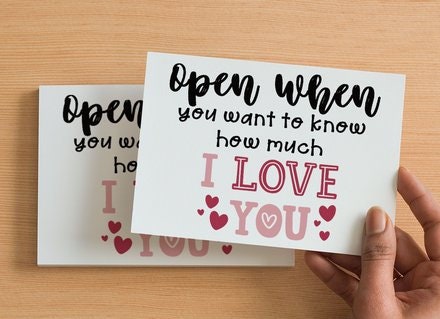 Open when
you want to know
how much
I LOVE
YOU
Open
you wa
ho
I
YOU